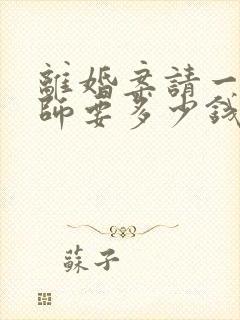 離婚案請一
師要多少錢
蘇子